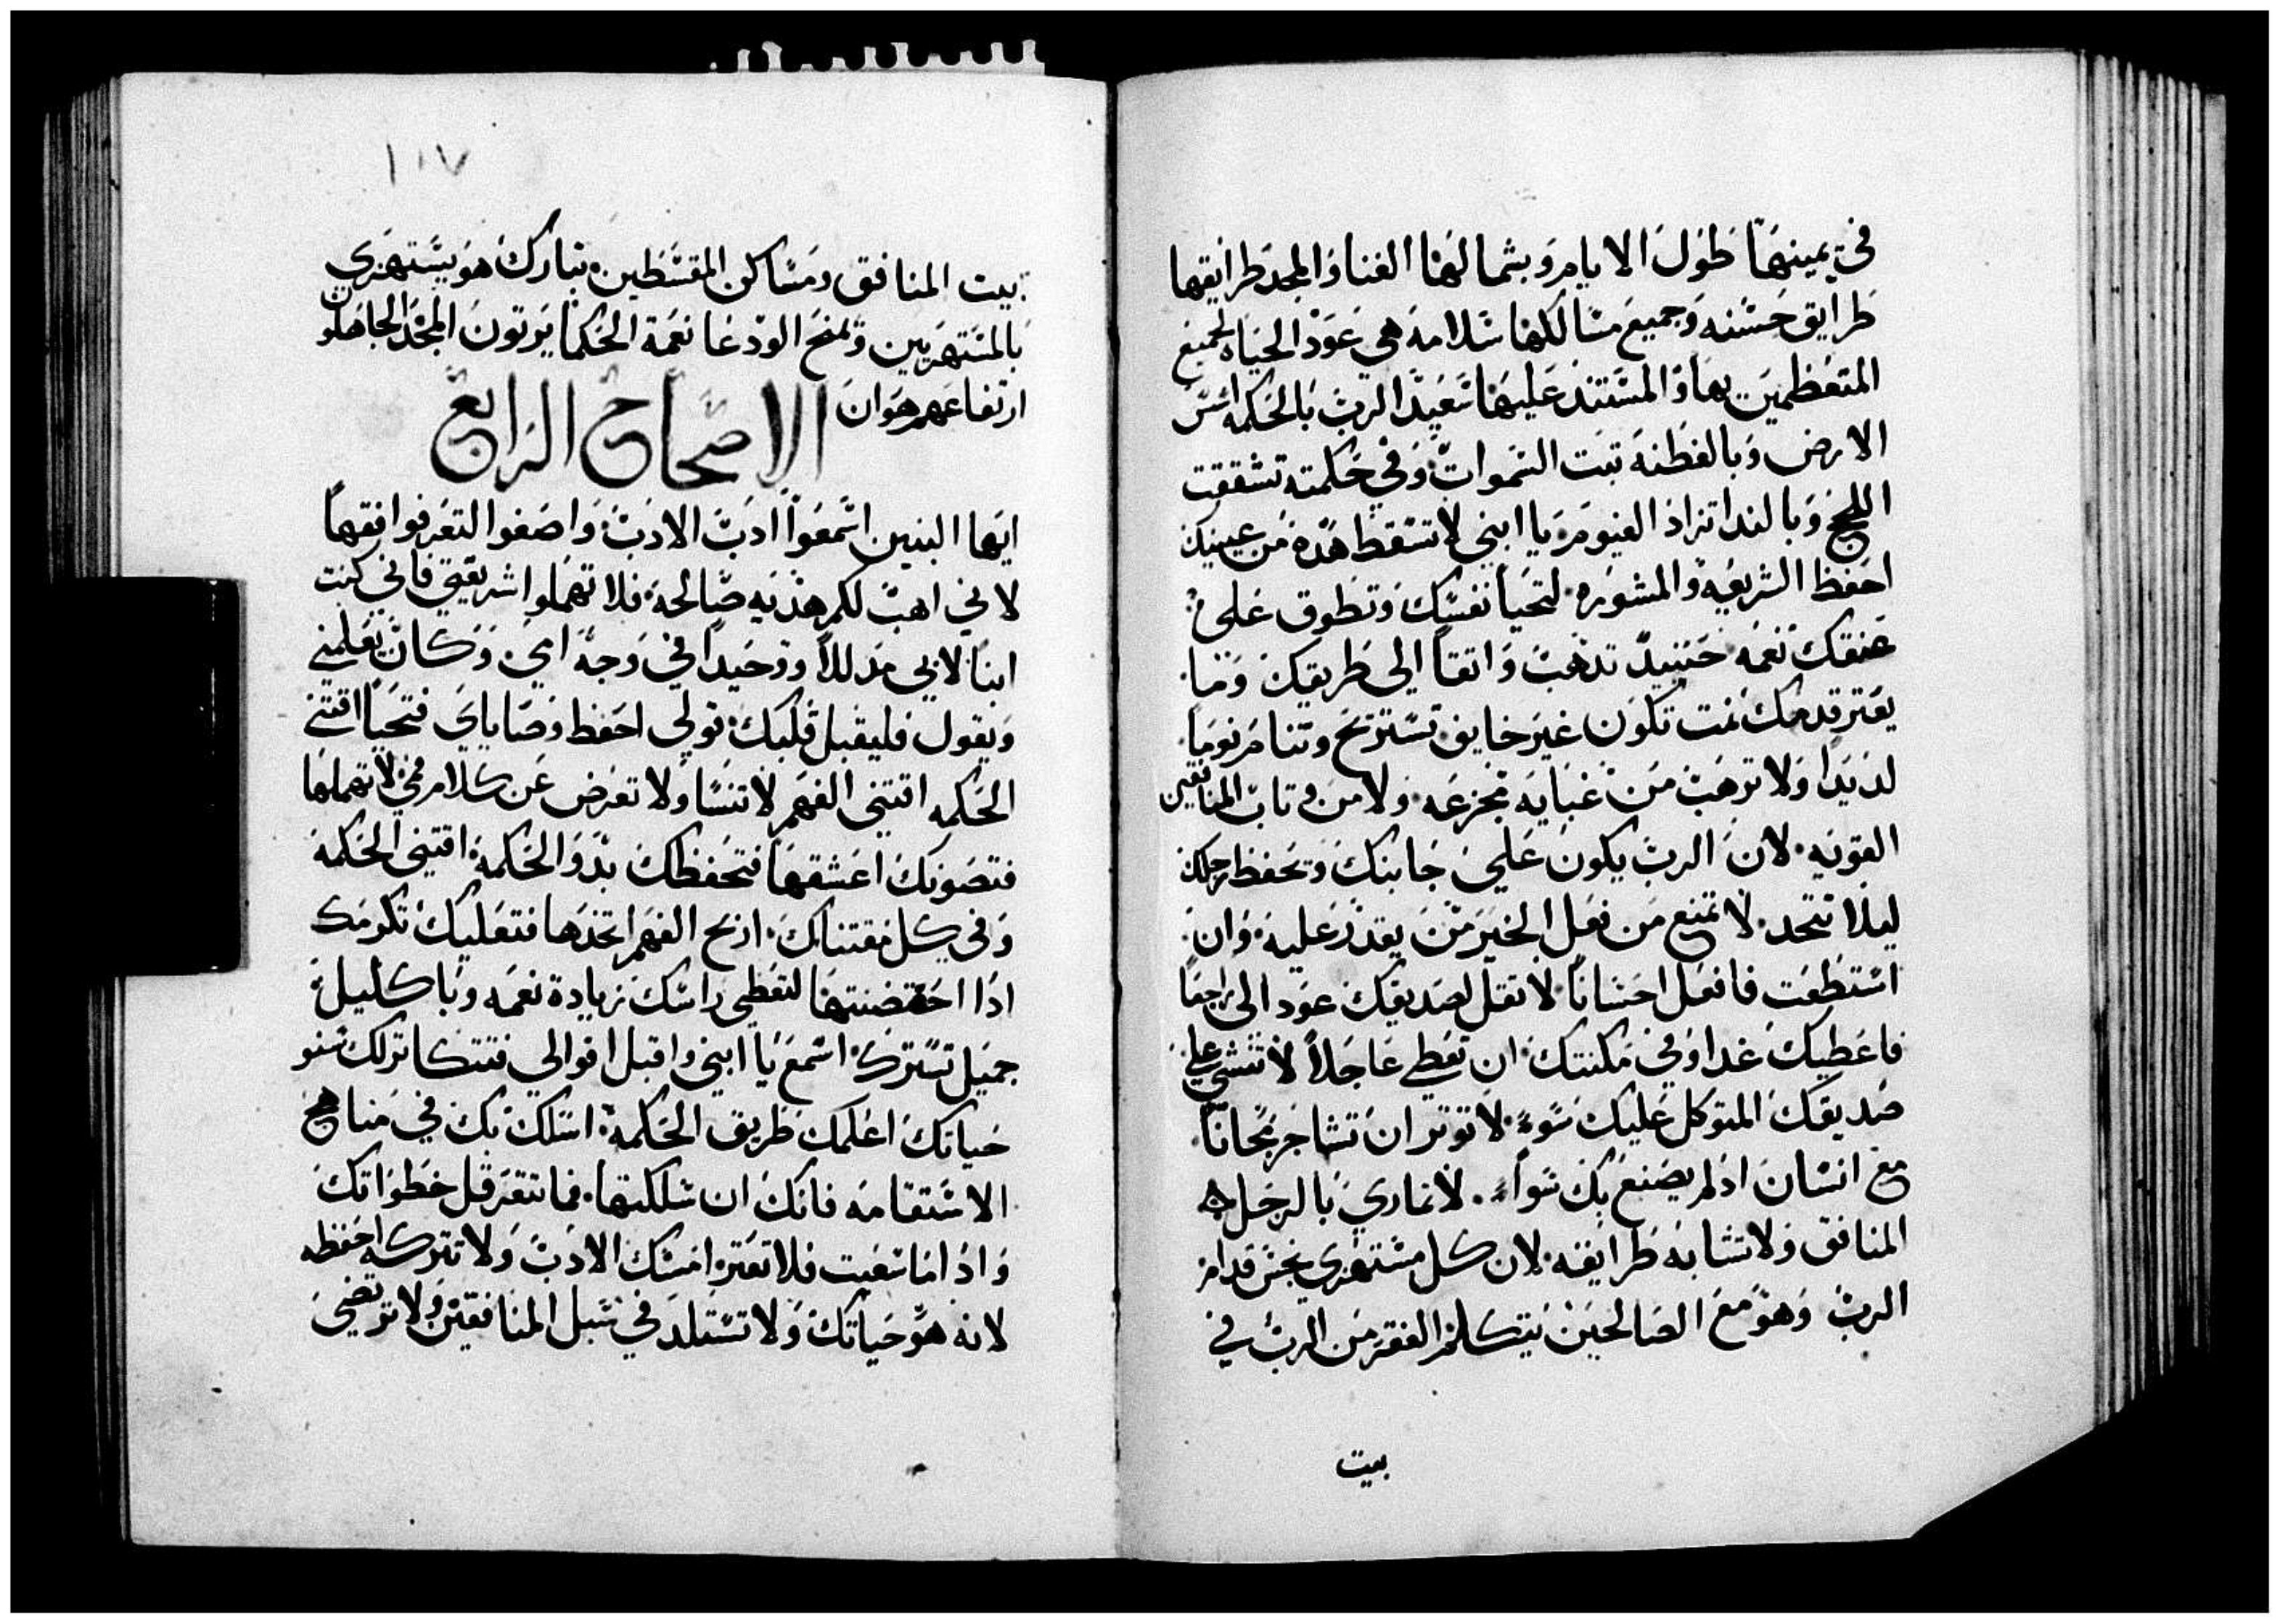 في يمينها طول الايام وبشمالها الغنا والمجد طرايقها
طرايق حسنه وجميع مسالكها سلامه هي عود الحياه لجميع
المتعظمين بها والمستند عليها سعيدا الرب بالحكمه اسس
الارض وبالفطنه تبت السموات وفي حكمته تشققت
اللجج وبالندا تزاد الغيوم يا ابني لا تسقط هده من عينيك
احفظ الشريعه والمشوره لتحيا نفسك وتطوق على
عنقك نعمه حينيد تدهب واتقا الى طريقك وما
يعتر قدمك نمت تكون غير خايف تستريح وتنام نوما
لديدا ولا ترهب من غبايه مجزعه ولا من وتاب المنافقين
القويه لان الرب يكون على جانبك وتحفظ رجلك
ليلا تتحد لا تمنع من فعل الخير من يقدر عليه وان
استطعت فافعل احسانا لا تقل لصديقك عود الى راجعا
فاعطيك غدا وفي مكنتك ان تعطي عاجلا لا تنشي على
صديقك المتوكل عليك سوء لا توتر ان تشاجر مجانا
مع انسان اد لم يصنع بك سواء لا تماري بالرجل
المنافق ولا تشابه طرايقه لان كل مستهزي نجس قدام
الرب وهو مع الصالحين يتكلم الفقر من الرب في
بيت
١٠٧
بيت المنافق ومساكن المقسطين تبارك هو يستهزي
بالمستهزيين ويمنح الودعا نعمة الحكما يرتون المجد الجاهلون
ارتفاعهم هوان الاصحاح الرابع
ايها البنين اسمعوا ادب الادب واصغوا لتعرفوا فقها
لاني اهب لكم هديه صالحة فلا تهملوا شريعتي فاني كنت
ابنا لابي مدللا ووحيدا في وجه امي وكان يعلمني
ويقول فليقبل قلبك قولي احفظ وصاياي فتحيا اقتني
الحكمه اقتني الفهم لا تنسا ولا تعرض عن كلام فمي لا تهملها
فتصونك اعشقها فتحفظك بدو الحكمة اقتني الحكمة
وفي كل مقتناك اربح الفهم اتخدها فتعليك تكرمك
ادا احتضنتها لتعطي راسك زيادة نعمه وباكليل
جميل تسترك اسمع يا ابني واقبل اقوالي فتتكاتر لك سنو
حياتك اعلمك طريق الحكمة اسلك بك في مناهج
الاستقامه فانك ان سلكتها فما تتعرقل خطواتك
وادا ما سعيت فلا تعتر امسك الادب ولا تتركه احفظه
لانه هو حياتك ولا تستلد في سبل المنافقين ولا ترتضي